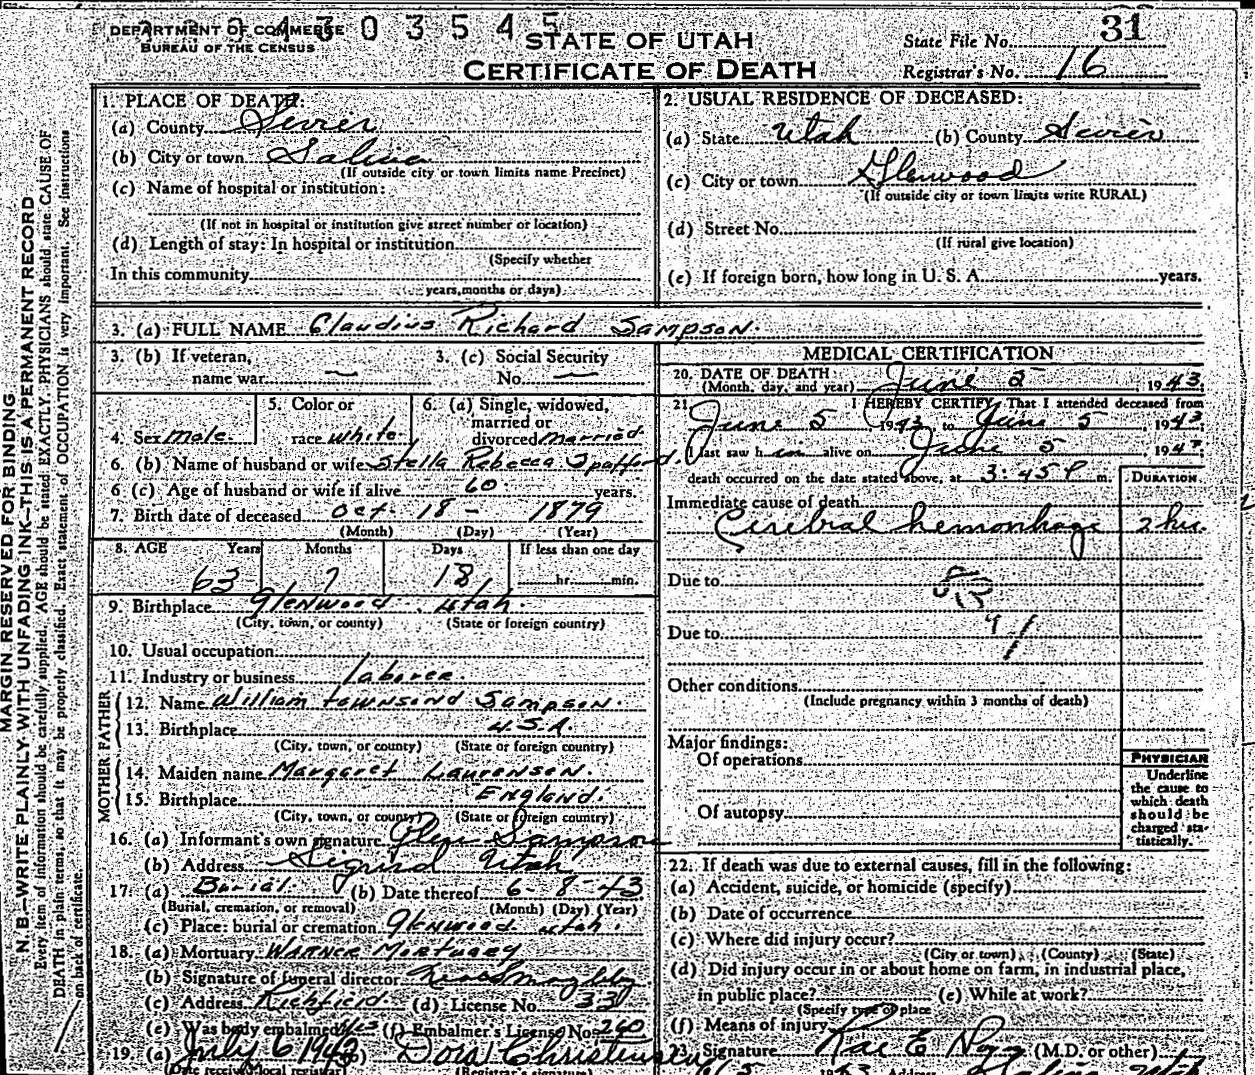 2 3 0 4 3 0 3 5 4 5
DEPARTMENT OF COMMERCE
BUREAU OF THE CENSUS
STATE OF UTAH
CERTIFICATE OF DEATH
State File No. 31
Registrar's No. 16
MARGIN RESERVED FOR BINDING
N. B.—WRITE PLAINLY WITH UNFADING INK—THIS IS A PERMANENT RECORD
Every item of information should be carefully supplied. AGE should be stated EXACTLY. PHYSICIANS should state CAUSE OF
DEATH in plain terms, so that it may be properly classified. Exact statement of OCCUPATION is very important. See instructions
on back of certificate.
1. PLACE OF DEATH:
(a) County Sevier
(b) City or town Salina
(If outside city or town limits name Precinct)
(c) Name of hospital or institution:
(If not in hospital or institution give street number or location)
(d) Length of stay: In hospital or institution
(Specify whether
In this community
years, months or days)
2. USUAL RESIDENCE OF DECEASED:
(a) State Utah (b) County Sevier
(c) City or town Glenwood
(If outside city or town limits write RURAL)
(d) Street No.
(If rural give location)
(e) If foreign born, how long in U. S. A. years.
3. (a) FULL NAME Claudius Richard Sampson.
3. (b) If veteran,
name war —
3. (c) Social Security
No. —
4. Sex male.
5. Color or
race white.
6. (a) Single, widowed,
married or
divorced married.
6. (b) Name of husband or wife Stella Rebecca Spafford.
6 (c) Age of husband or wife if alive 60 years.
7. Birth date of deceased Oct. 18 - 1879
(Month) (Day) (Year)
8. AGE Years Months Days If less than one day
63 7 18 hr. min.
9. Birthplace Glenwood. Utah.
(City, town, or county) (State or foreign country)
10. Usual occupation
11. Industry or business laborer.
FATHER
12. Name William Townsend Sampson.
13. Birthplace U.S.A.
(City, town, or county) (State or foreign country)
MOTHER
14. Maiden name Margaret Laurensen.
15. Birthplace England.
(City, town, or county) (State or foreign country)
16. (a) Informant's own signature Glen Sampson
(b) Address Sigurd Utah
17. (a) Burial. (b) Date thereof 6 8-43
(Burial, cremation, or removal) (Month) (Day) (Year)
(c) Place: burial or cremation Glenwood Utah.
18. (a) Mortuary Warner Mortuary
(b) Signature of funeral director
(c) Address Richfield. (d) License No. 33
(e) Was body embalmed Yes (f) Embalmer's License No. 260
19. (a) July 6 1943 (b) Dora Christensen
(Date received local registrar) (Registrar's signature)
MEDICAL CERTIFICATION
20. DATE OF DEATH:
(Month, day, and year) June 5, 1943.
21. I HEREBY CERTIFY, That I attended deceased from
June 5 1943 to June 5, 1943
I last saw him alive on June 5, 1943
death occurred on the date stated above, at 3:45 P m.
DURATION
Immediate cause of death
Cerebral hemorrhage 2 hrs.
Due to
Due to
Other conditions
(Include pregnancy within 3 months of death)
Major findings:
Of operations
Of autopsy
PHYSICIAN
Underline
the cause to
which death
should be
charged sta-
tistically.
22. If death was due to external causes, fill in the following:
(a) Accident, suicide, or homicide (specify)
(b) Date of occurrence
(c) Where did injury occur?
(City or town) (County) (State)
(d) Did injury occur in or about home on farm, in industrial place,
in public place? (e) While at work?
(Specify type of place
(f) Means of injury
23. Signature Rae E. Noyes (M.D. or other)